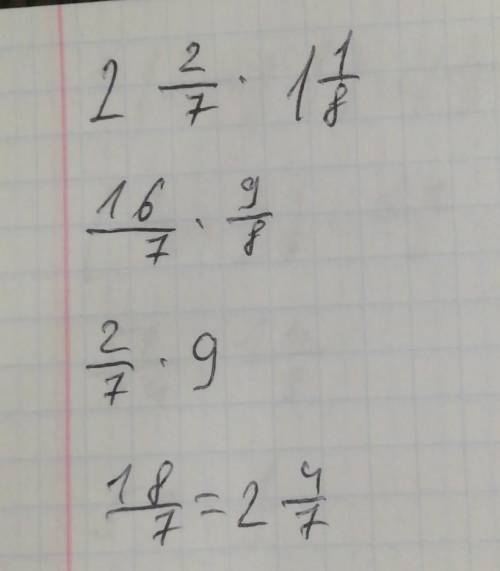 2 2/7 · 1 1/8
16/7 · 9/8
2/7 · 9
18/7 = 2 4/7